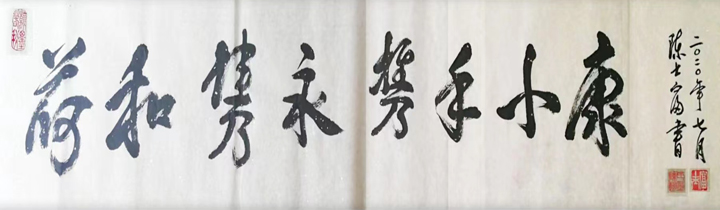 荷和隽永携手小康
二〇二〇年七月
陈士富书